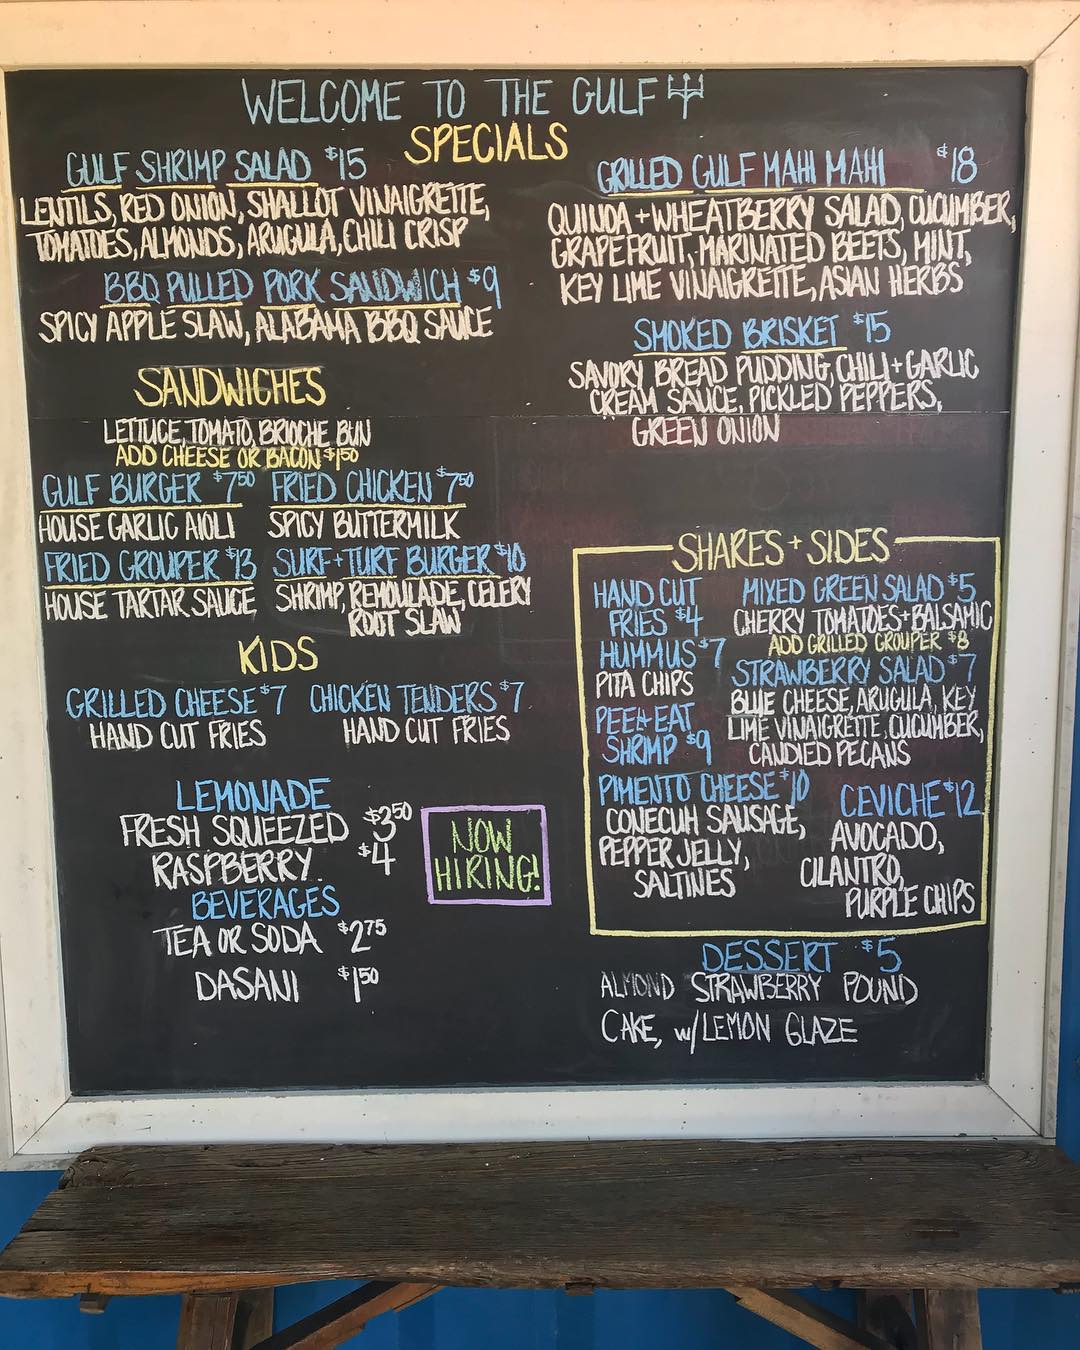 WELCOME TO THE GULF
SPECIALS
GULF SHRIMP SALAD $15
LENTILS, RED ONION, SHALLOT VINAIGRETTE,
TOMATOES, ALMONDS, ARUGULA, CHILI CRISP
BBQ PULLED PORK SANDWICH $9
SPICY APPLE SLAW, ALABAMA BBQ SAUCE
GRILLED GULF MAHI MAHI $18
QUINOA + WHEATBERRY SALAD, CUCUMBER,
GRAPEFRUIT, MARINATED BEETS, MINT,
KEY LIME VINAIGRETTE, ASIAN HERBS
SMOKED BRISKET $15
SAVORY BREAD PUDDING, CHILI + GARLIC
CREAM SAUCE, PICKLED PEPPERS,
GREEN ONION
SANDWICHES
LETTUCE, TOMATO, BRIOCHE BUN
ADD CHEESE OR BACON $1.50
GULF BURGER $7.50
HOUSE GARLIC AIOLI
FRIED CHICKEN $7.50
SPICY BUTTERMILK
FRIED GROUPER $13
HOUSE TARTAR SAUCE
SURF + TURF BURGER $10
SHRIMP, REMOULADE, CELERY
ROOT SLAW
KIDS
GRILLED CHEESE $7
HAND CUT FRIES
CHICKEN TENDERS $7
HAND CUT FRIES
LEMONADE
FRESH SQUEEZED $3.50
RASPBERRY $4
BEVERAGES
TEA OR SODA $2.75
DASANI $1.50
NOW
HIRING!
SHARES + SIDES
HAND CUT
FRIES $4
HUMMUS $7
PITA CHIPS
PEEL+EAT
SHRIMP $9
PIMENTO CHEESE $10
CONECUH SAUSAGE,
PEPPER JELLY,
SALTINES
MIXED GREEN SALAD $5
CHERRY TOMATOES + BALSAMIC
ADD GRILLED GROUPER $8
STRAWBERRY SALAD $7
BLUE CHEESE, ARUGULA, KEY
LIME VINAIGRETTE, CUCUMBER,
CANDIED PECANS
CEVICHE $12
AVOCADO,
CILANTRO,
PURPLE CHIPS
DESSERT $5
ALMOND STRAWBERRY POUND
CAKE, w/ LEMON GLAZE